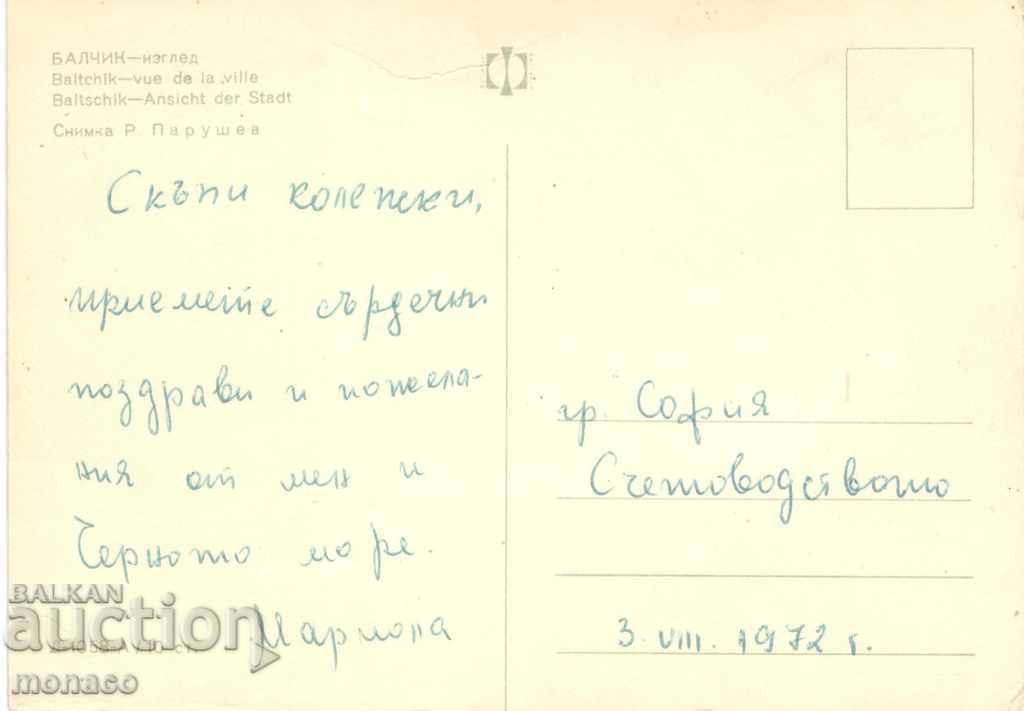 БАЛЧИК—изглед
Baltchik—vue de la ville
Baltschik—Ansicht der Stadt
Снимка Р. Парушев
Скъпи колежки,
приемете сърдечни
поздрави и пожела-
ния от мен и
Черното море.
гр. София
Счетоводството
3. VIII. 1972 г.
BALKAN
auction
monaco